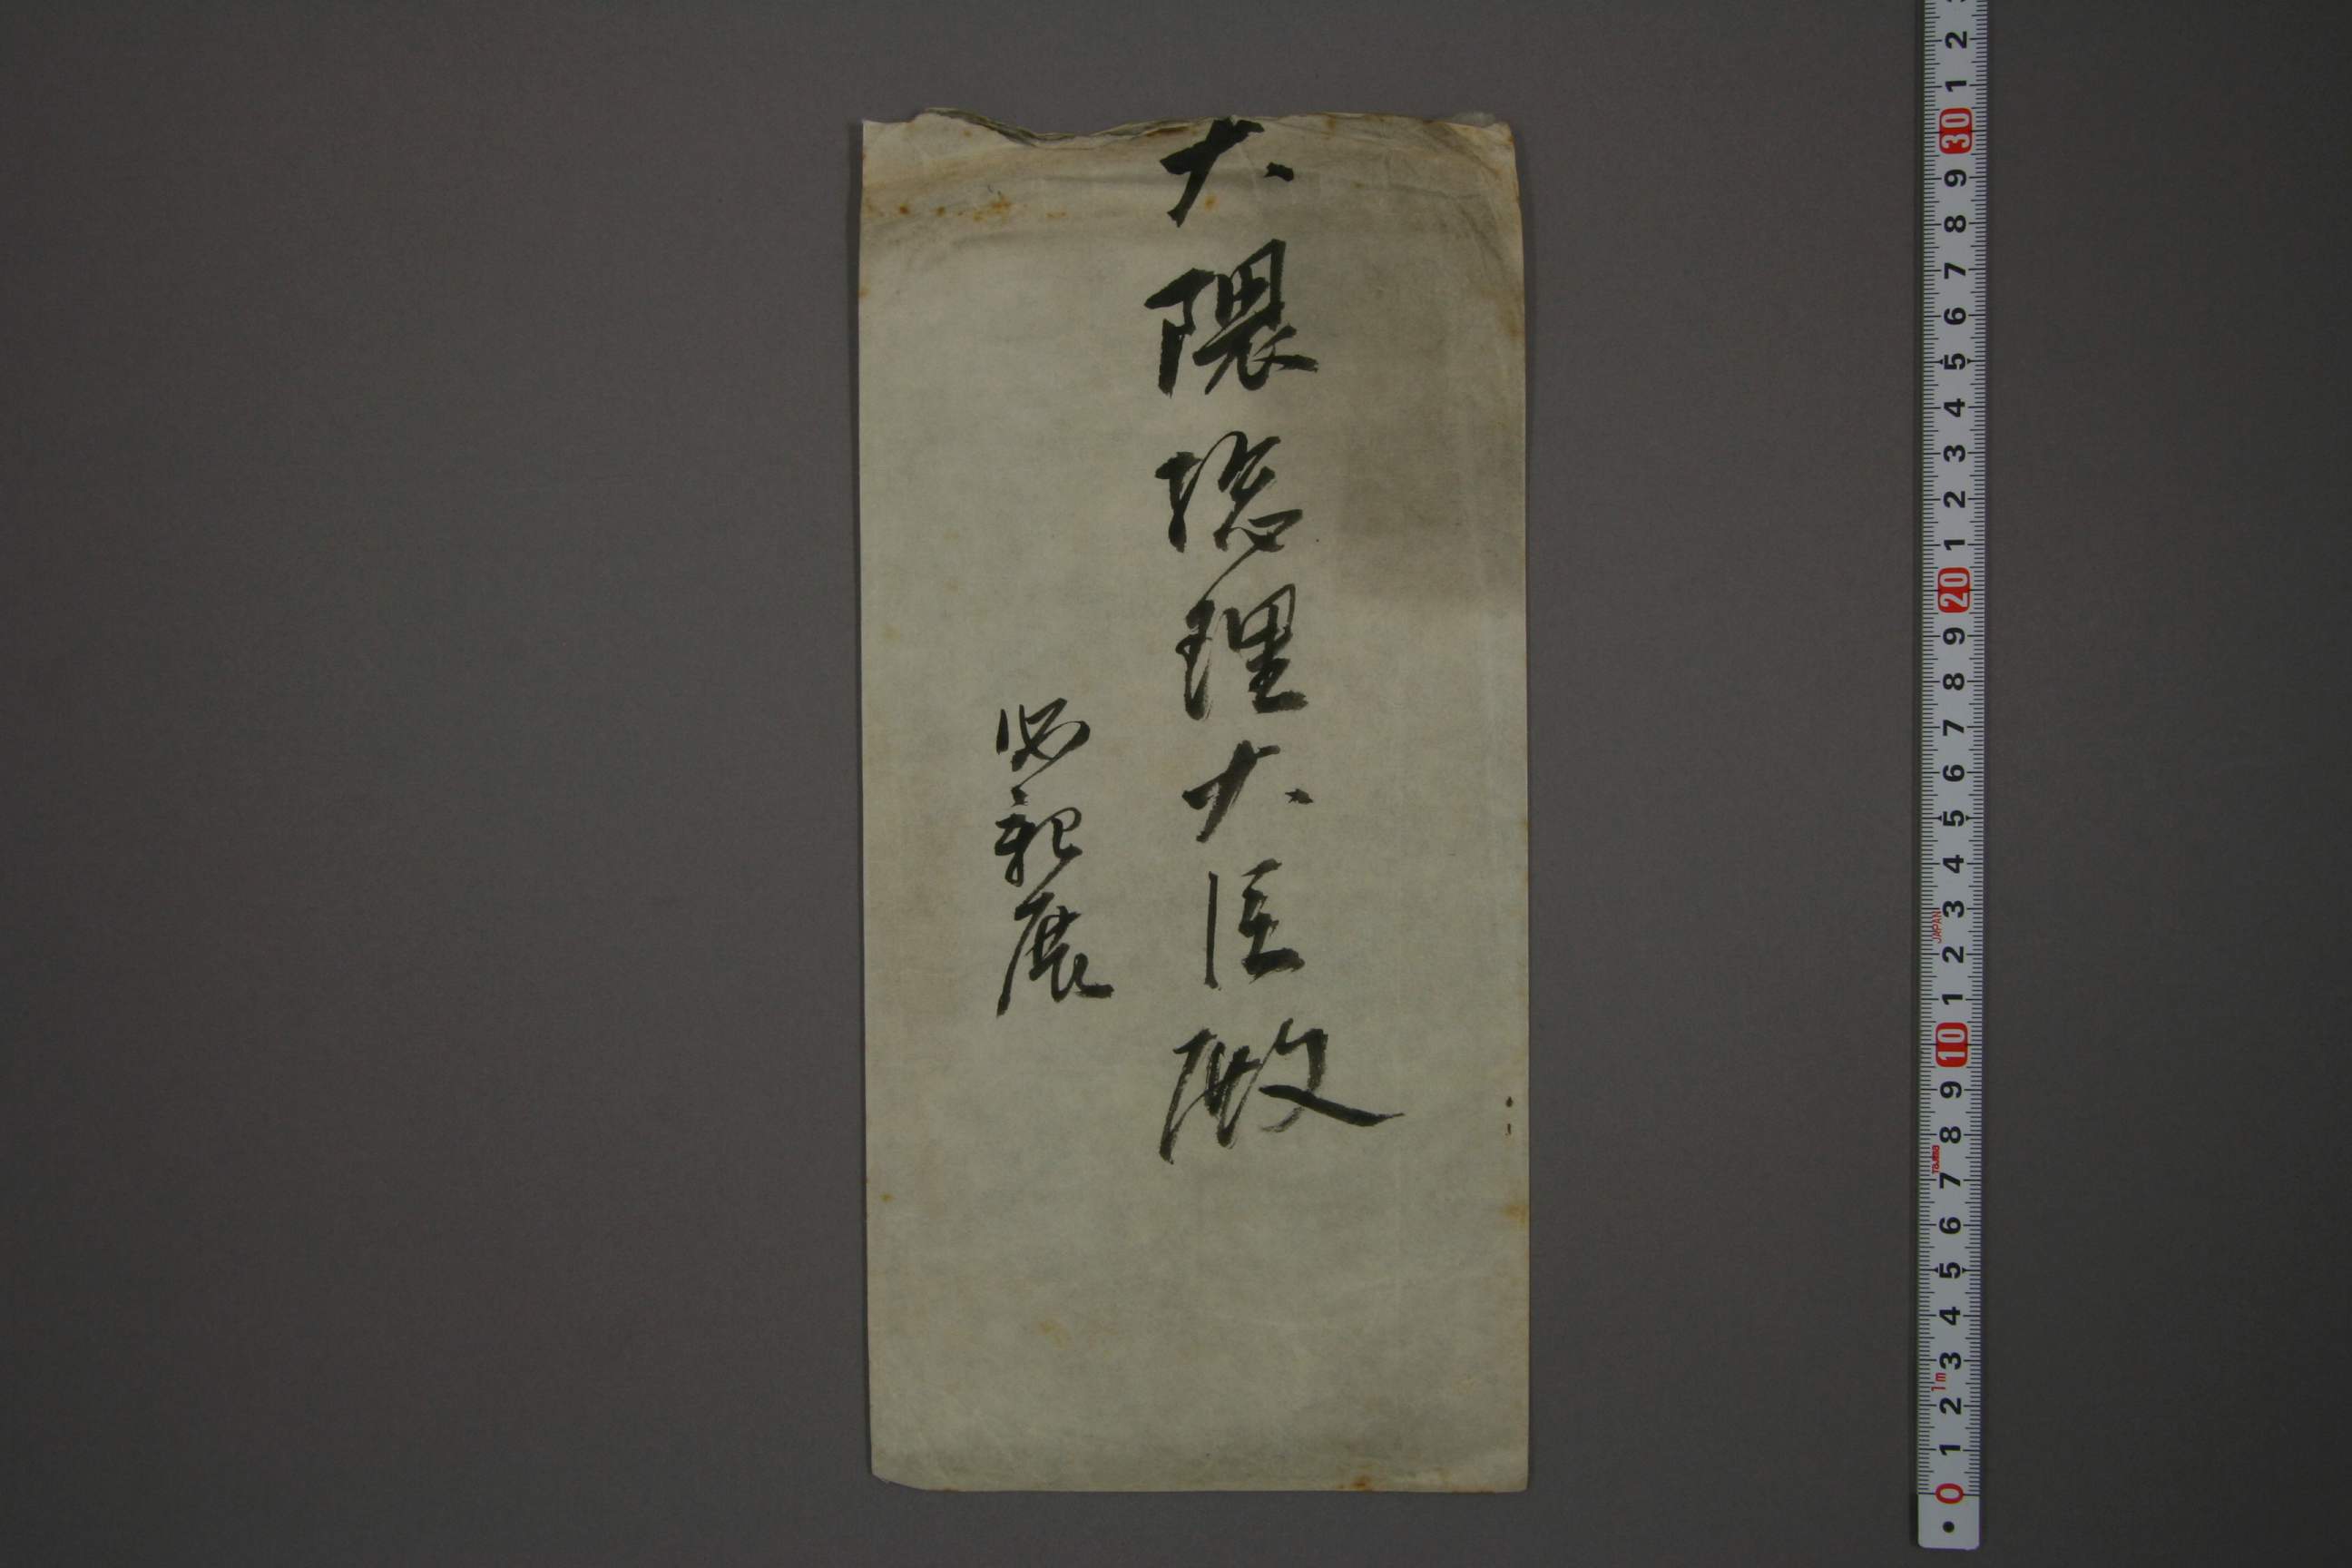 大隈総理大臣殿
必親展
0 1 2 3 4 5 6 7 8 9 10 1 2 3 4 5 6 7 8 9 20 1 2 3 4 5 6 7 8 9 30 1 2
1m
Tajima
JAPAN